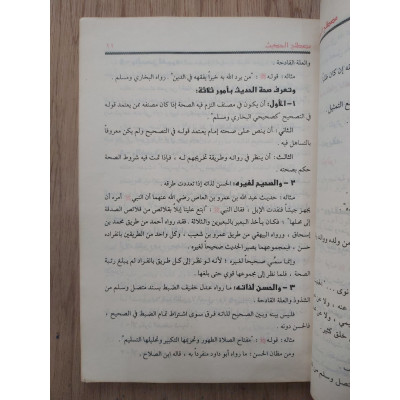 مصطلح الحديث
والعلة القادحة .
مثاله : قوله ﷺ : "من يرد الله به خيراً يفقهه في الدين" . رواه البخاري ومسلم .
وتعرف صحة الحديث بأمور ثلاثة:
١ – الأول: أن يكون في مصنف التزم فيه الصحة إذا كان مصنفه ممن يعتمد قوله
في التصحيح كصحيحي البخاري ومسلم .
الثاني: أن ينص على صحته إمام يعتمد قوله في التصحيح ولم يكن معروفاً
بالتساهل فيه .
الثالث: أن ينظر في رواته وطريقة تخريجهم له ، فإذا تمت فيه شروط الصحة
حكم بصحته .
٢ – والصحيح لغيره: الحسن لذاته إذا تعددت طرقه .
مثاله: حديث عبد الله بن عمرو بن العاص رضي الله عنهما أن النبي ﷺ أمره أن
يجهز جيشاً فنفدت الإبل ، فقال النبي ﷺ : "ابتع علينا إبلاً بقلائص من قلائص الصدقة
إلى محلها" . فكان يأخذ البعير بالبعيرين والثلاثة . فقد رواه أحمد من طريق محمد بن
إسحاق ، ورواه البيهقي من طريق عمرو بن شعيب ، وكل واحد من الطريقين بانفراده
حسن ، فبمجموعهما يصير الحديث صحيحاً لغيره .
وإنما سمِّي صحيحاً لغيره ؛ لأنه لو نظر إلى كل طريق بانفراد لم يبلغ رتبة
الصحة ، فلما نظر إلى مجموعهما قوي حتى بلغها .
٣ – والحسن لذاته: ما رواه عدل خفيف الضبط بسند متصل وسلم من
الشذوذ والعلة القادحة .
فليس بينه وبين الصحيح لذاته فرق سوى اشتراط تمام الضبط في الصحيح ،
فالحسن دونه .
مثاله : قوله ﷺ : "مفتاح الصلاة الطهور وتحريمها التكبير وتحليلها التسليم" .
ومن مظان الحسن : ما رواه أبو داود منفرداً به ، قاله ابن الصلاح .